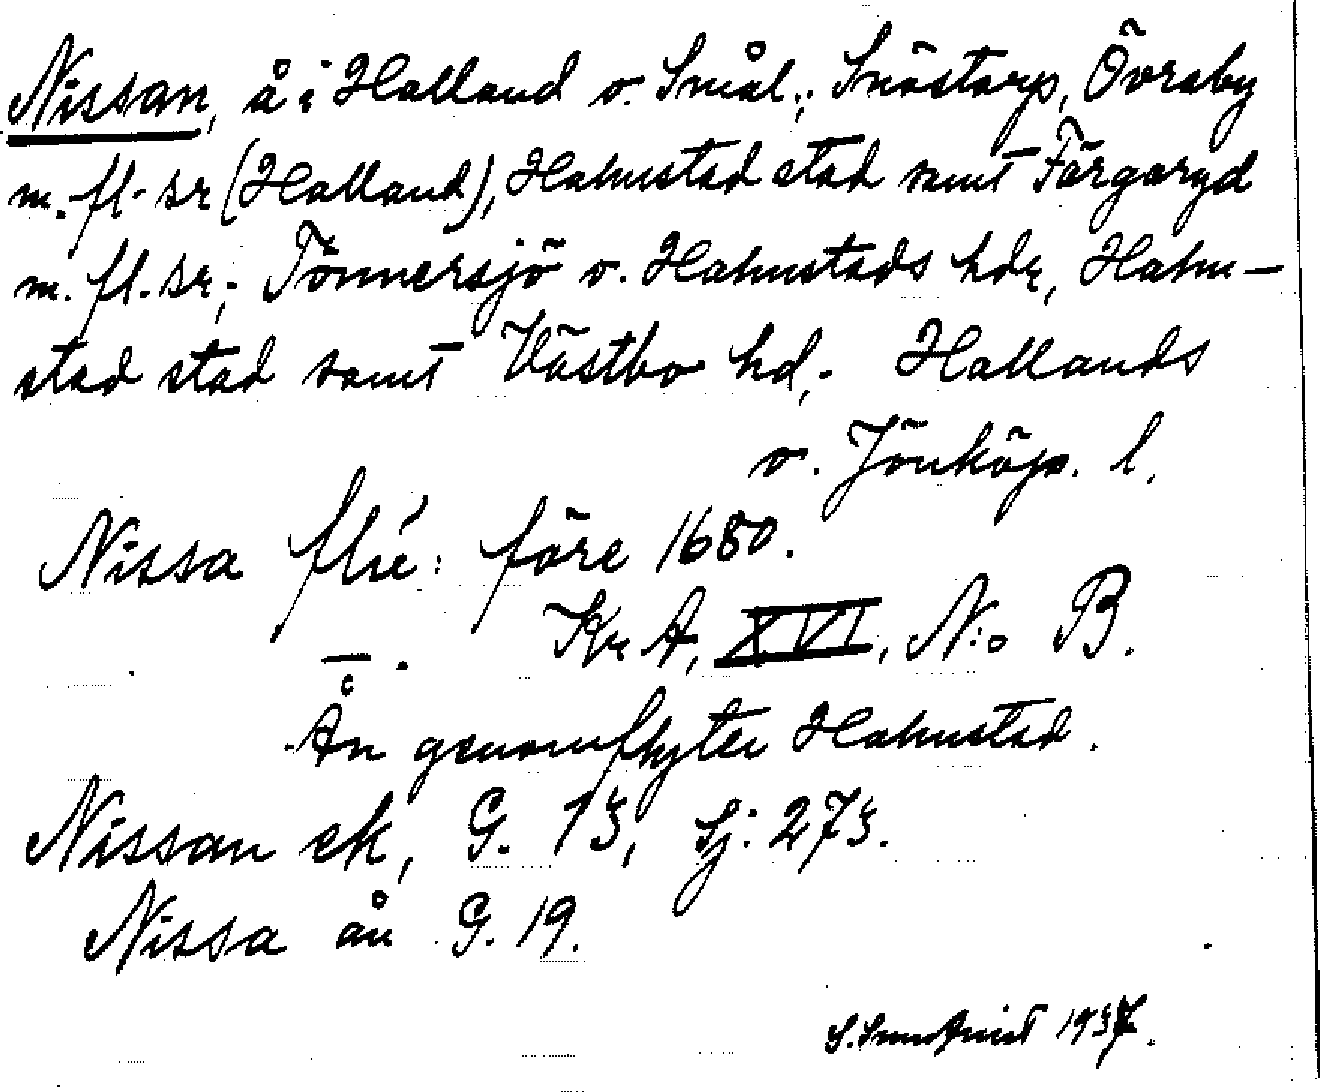 Nissan, å i Halland o. Smål.; Snöstorp, Övraby
m. fl. sr (Halland), Halmstad stad samt Färgaryd
m. fl. sr; Tönnersjö o. Halmstads hdr, Halm-
stad stad samt Västbo hd. Hallands
o. Jönköps. l.
Nissa flu: före 1680.
Kr A, XVI, N:o B.
— .
Ån genomflyter Halmstad.
Nissan ek, G. 13, Sj: 273.
Nissa ån G. 19.
1937.